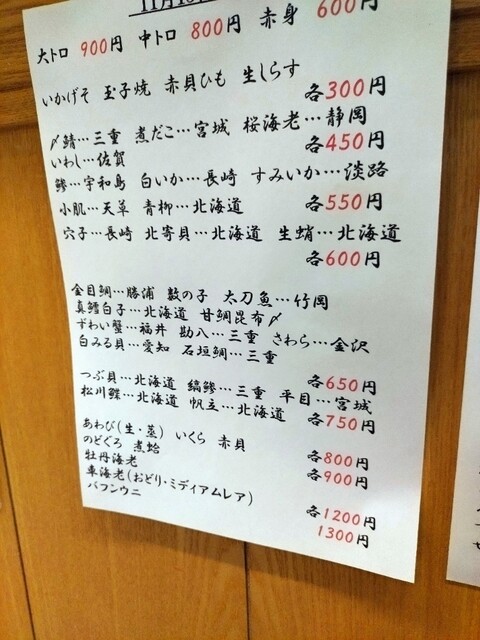 大トロ 900円 中トロ 800円 赤身 600円
いかげそ 玉子焼 赤貝ひも 生しらす
各300円
〆鯖…三重 煮だこ…宮城 桜海老…静岡
いわし…佐賀
各450円
鯵…宇和島 白いか…長崎 すみいか…淡路
小肌…天草 青柳…北海道
各550円
穴子…長崎 北寄貝…北海道 生蛸…北海道
各600円
金目鯛…勝浦 数の子 太刀魚…竹岡
真鱈白子…北海道 甘鯛昆布〆
ずわい蟹…福井 勘八…三重 さわら…金沢
白みる貝…愛知 石垣鯛…三重
各650円
つぶ貝…北海道 縞鯵…三重 平目…宮城
松川鰈…北海道 帆立…北海道
各750円
あわび(生・蒸) いくら 赤貝
各800円
のどぐろ 煮蛤
各900円
牡丹海老
車海老(おどり・ミディアムレア)
各1200円
バフンウニ
1300円